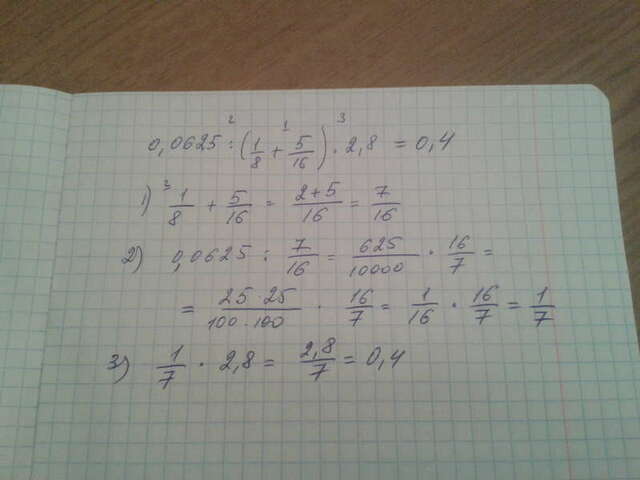 2 1 3
0,0625 : (1/8 + 5/16) · 2,8 = 0,4
1) 3 1/8 + 5/16 = 2+5/16 = 7/16
2) 0,0625 : 7/16 = 625/10000 · 16/7 =
= 25·25/100·100 · 16/7 = 1/16 · 16/7 = 1/7
3) 1/7 · 2,8 = 2,8/7 = 0,4